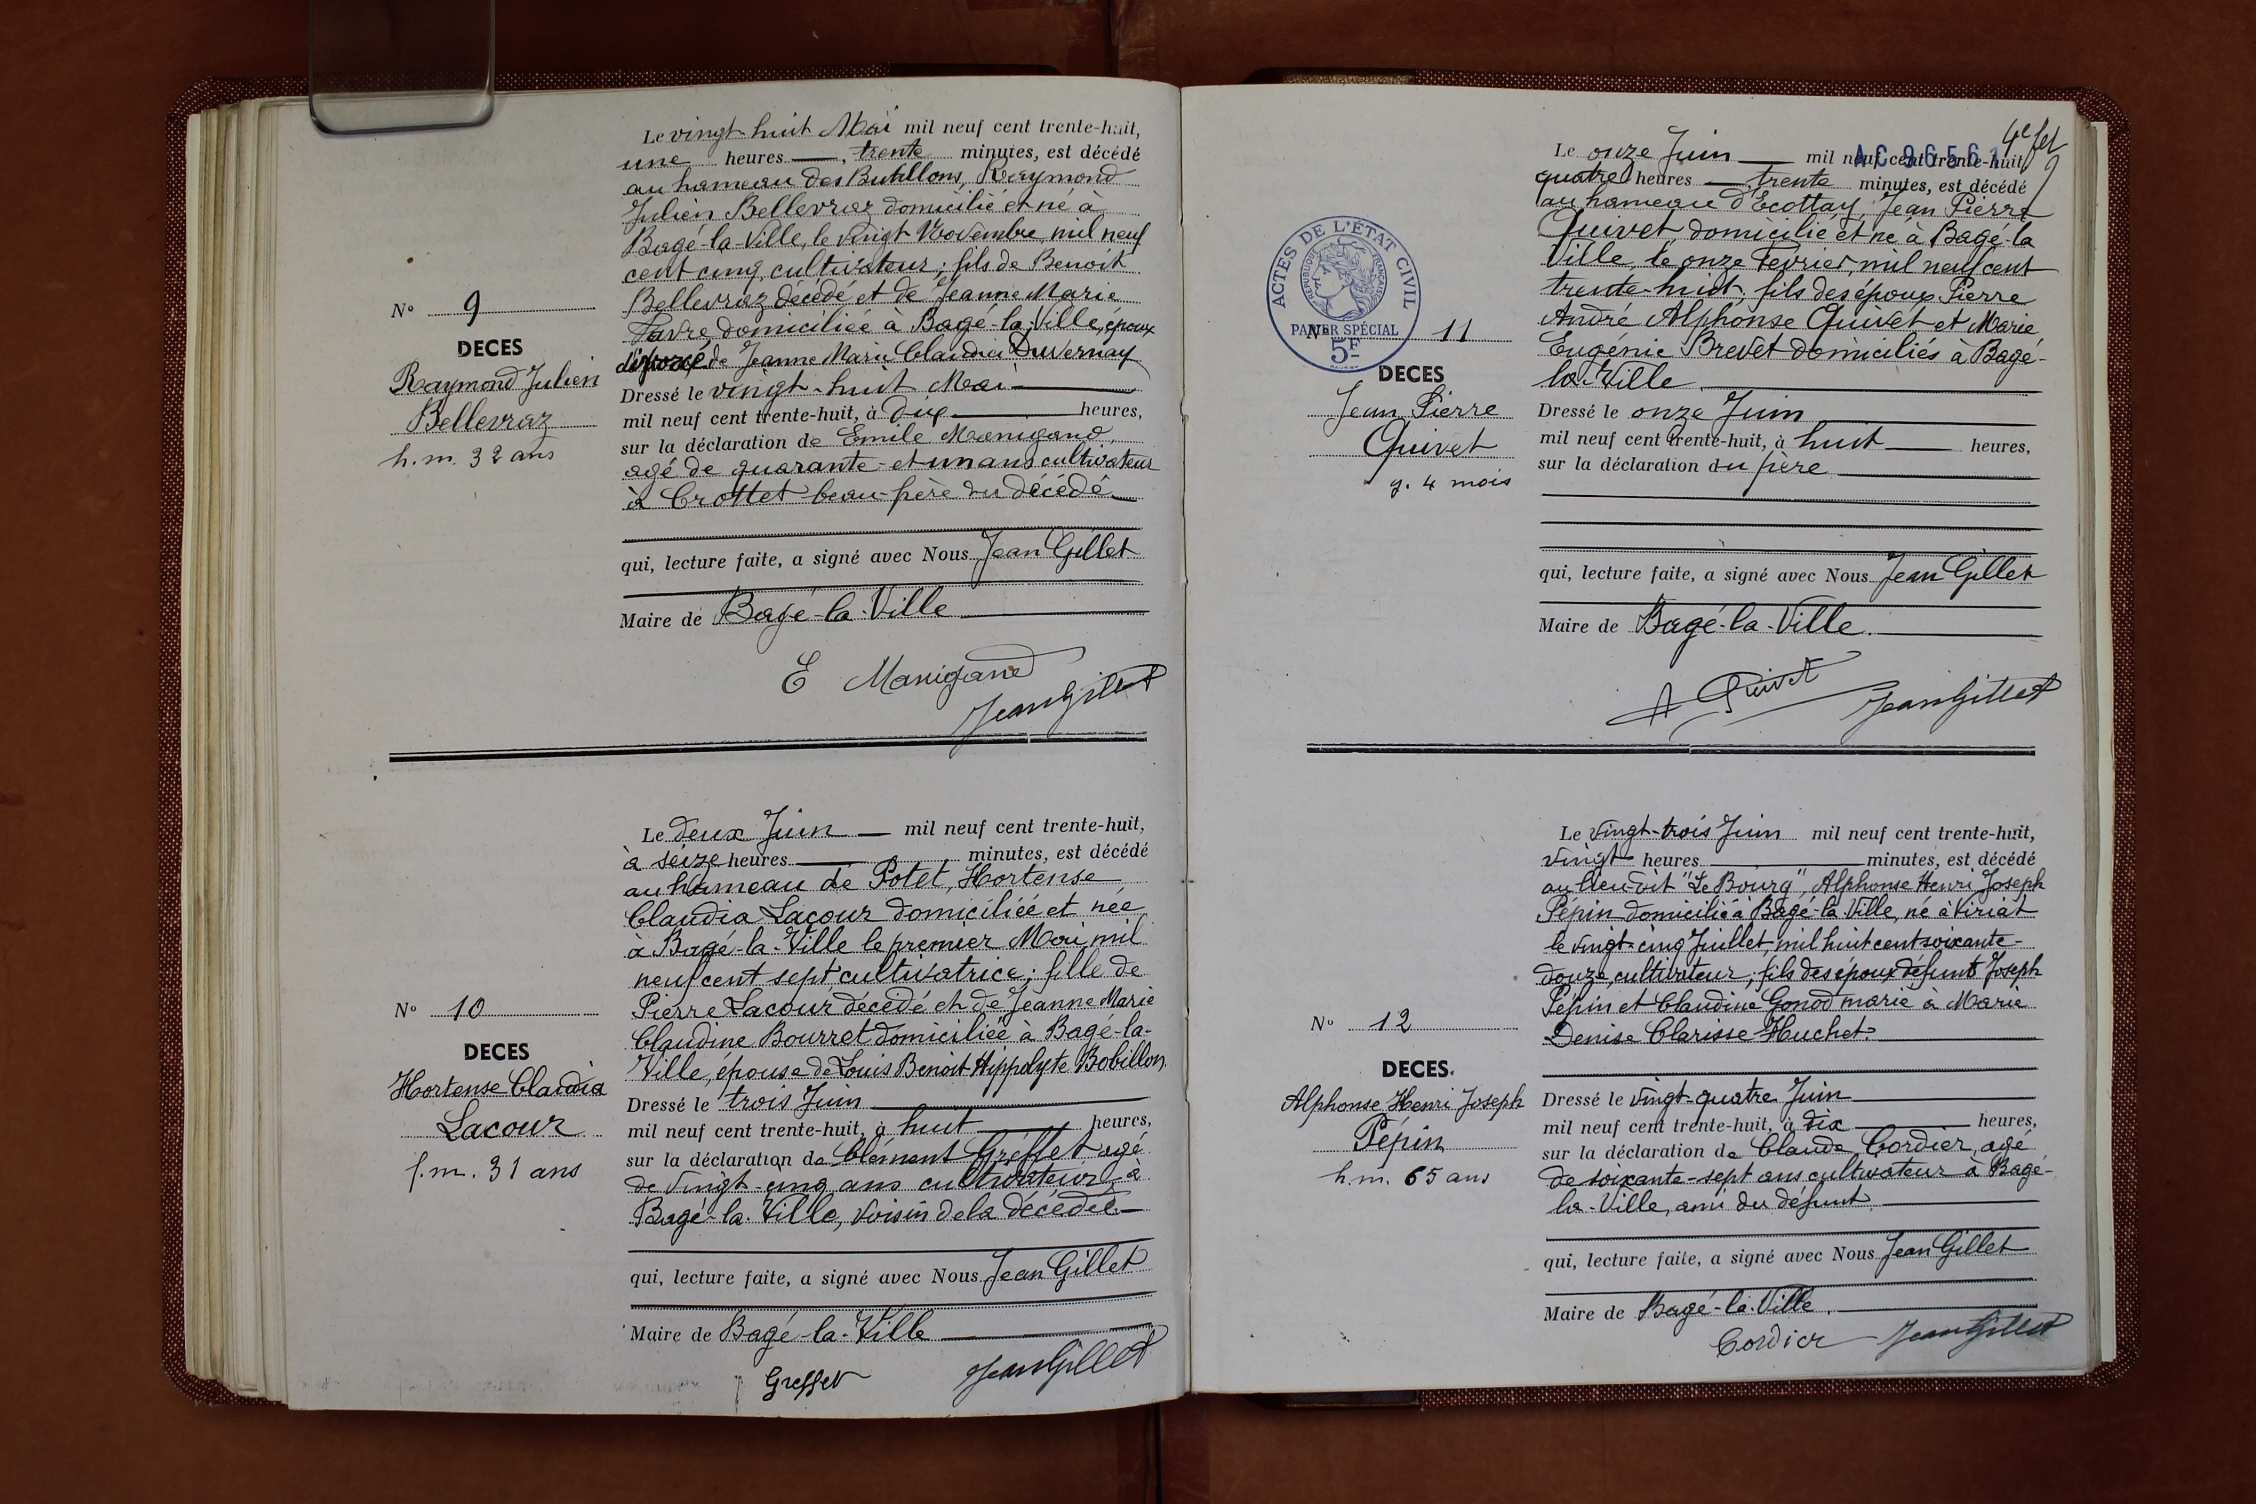 Le vingt-huit Mai mil neuf cent trente-huit,
une heures , trente minutes, est décédé
au hameau des Buhllons, Raymond
Julien Bellevraz domicilié et né à
Bagé-la-Ville, le vingt Novembre mil neuf
cent cinq, cultivateur ; fils de Benoit
Bellevraz décédé et de Jeanne Marie
Favre domiciliée à Bagé-la-Ville, époux
divorcé de Jeanne Marie Claudia Duvernay
N° 9
DECES
Raymond Julien
Bellevraz
h.m. 32 ans
Dressé le vingt-huit Mai
mil neuf cent trente-huit, à dix heures,
sur la déclaration de Emile Manigand,
agé de quarante-et un ans cultivateur
à Crottet beau-frère du décédé
qui, lecture faite, a signé avec Nous Jean Gillet
Maire de Bagé-la-Ville
E Manigand
Jean Gillet
Le deux Juin mil neuf cent trente-huit,
à seize heures minutes, est décédé
au hameau de Potet, Hortense
Claudia Lacour domiciliée et née
à Bagé-la-Ville le premier Mai mil
neuf cent sept cultivatrice ; fille de
Pierre Lacour décédé et de Jeanne Marie
Claudine Bourret domiciliée à Bagé-la-
Ville, épouse de Louis Benoit Hippolyte Bobillon
N° 10
DECES
Hortense Claudia
Lacour
f.m. 31 ans
Dressé le trois Juin
mil neuf cent trente-huit, à huit heures,
sur la déclaration de Clément Greffet agé
de vingt-cinq ans cultivateur à
Bagé-la-Ville, voisin de la décédée
qui, lecture faite, a signé avec Nous Jean Gillet
Maire de Bagé-la-Ville
Greffet
Jean Gillet
4e fet
AC 96561
Le onze Juin mil neuf cent trente-huit,
quatre heures trente minutes, est décédé
au hameau d'Ecottay, Jean Pierre
Quivet domicilié et né à Bagé-la
Ville le onze Février mil neuf cent
trente-huit, fils des époux Pierre
André Alphonse Quivet et Marie
Eugénie Brevet domiciliés à Bagé-
la-Ville
ACTES DE L'ÉTAT CIVIL
RÉPUBLIQUE FRANÇAISE
PAPIER SPÉCIAL
5F
N° 11
DECES
Jean Pierre
Quivet
g. 4 mois
Dressé le onze Juin
mil neuf cent trente-huit, à huit heures,
sur la déclaration du père
qui, lecture faite, a signé avec Nous Jean Gillet
Maire de Bagé-la-Ville.
A Quivet
Jean Gillet
Le vingt-trois Juin mil neuf cent trente-huit,
vingt heures minutes, est décédé
au lieu-dit "Le Bourg", Alphonse Henri Joseph
Pépin domicilié à Bagé-la-Ville, né à Viriat
le vingt-cinq Juillet mil huit cent soixante-
douze, cultivateur ; fils des époux défunts Joseph
Pépin et Claudine Gonod marié à Marie
Denise Clarisse Huchet.
N° 12
DECES.
Alphonse Henri Joseph
Pépin
h.m. 65 ans
Dressé le vingt-quatre Juin
mil neuf cent trente-huit, à dix heures,
sur la déclaration de Claude Cordier, agé
de soixante-sept ans cultivateur à Bagé-
la-Ville, ami du défunt.
qui, lecture faite, a signé avec Nous Jean Gillet
Maire de Bagé-la-Ville.
Cordier
Jean Gillet